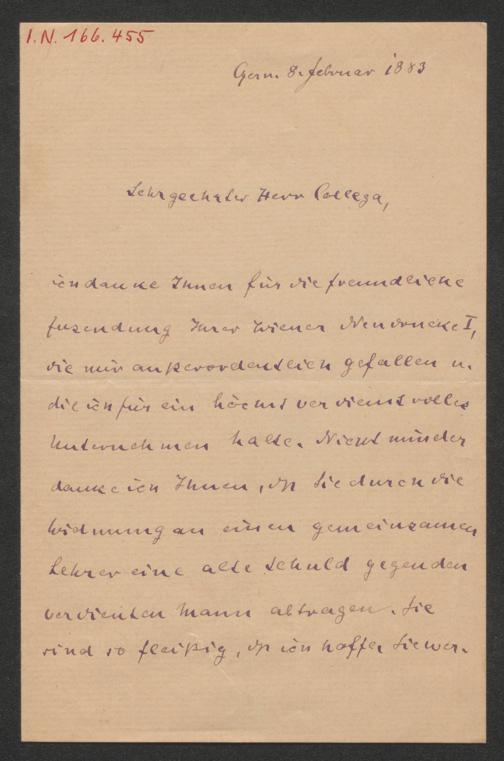 I.N. 166.455
8. Februar 1883
Sehrgeehrter Herr Collega,
ich danke Ihnen für die freundliche
Zusendung Ihrer Wiener Neudrucke I,
die mir außerordentlich gefallen u.
die ich für ein höchst verdienstvolles
Unternehmen halte. Nicht minder
danke ich Ihnen, dß Sie durch die
Widmung an einen gemeinsamen
Lehrer eine alte Schuld gegen den
verdienten Mann abtragen. Sie
sind so fleißig, dß ich hoffe, Sie wer-